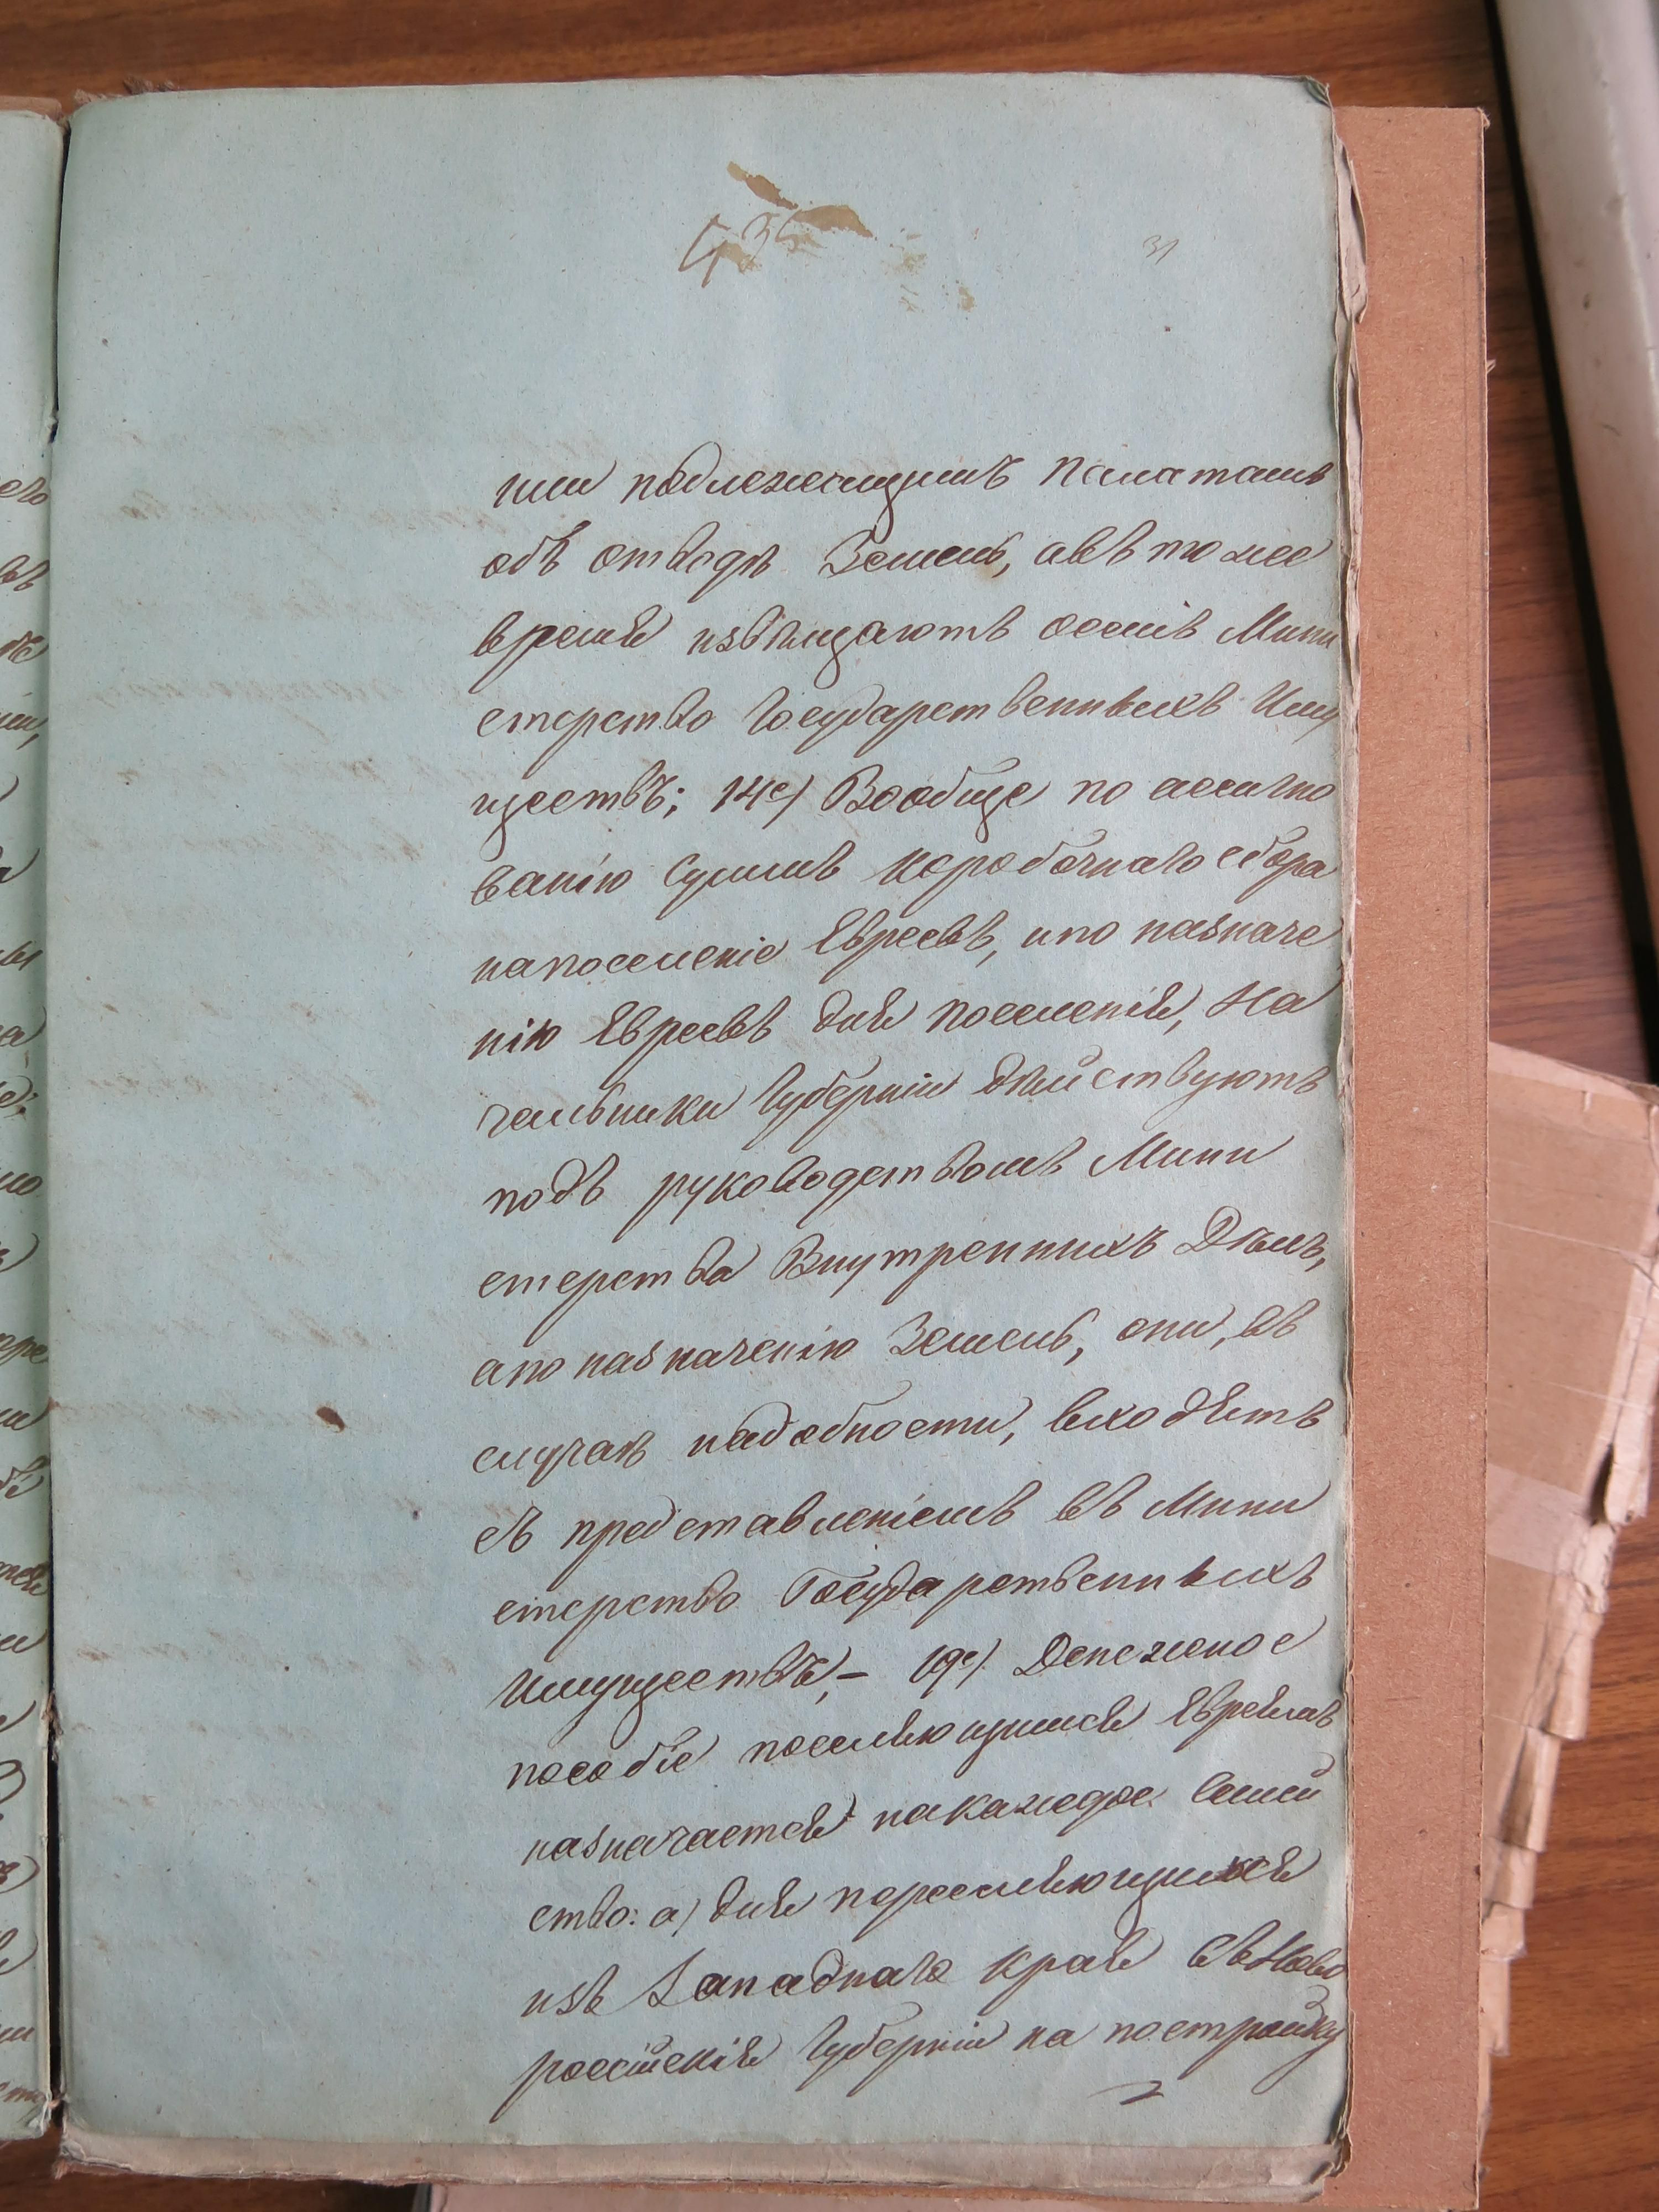 436
31
ніи подлежащимъ Палатамъ
объ отводѣ Земель, авъ тоже
время извѣщаютъ осемъ Мини
стерство Государственныхъ Иму
ществъ; 14е) Вообще по ассигно
ванію Суммъ Коробочнаго сбора
напоселеніе Евреевъ, ипо назначе
нію Евреевъ для поселенія, На
чальники Губерніи дѣйствуютъ
подъ руководствомъ Мини
стерства Внутреннихъ Дѣлъ,
апо назначенію Земель, они, въ
случаѣ надобности, входятъ
съ представленіемъ въ Мини
стерство Государственныхъ
Имуществъ, – 19е). Денежное
пособіе поселяющимся Евреямъ
назначается накаждое Семей
ство: а) для переселяющихся
изъ Западнаго края въ Ново
россійскія Губерніи на постройку